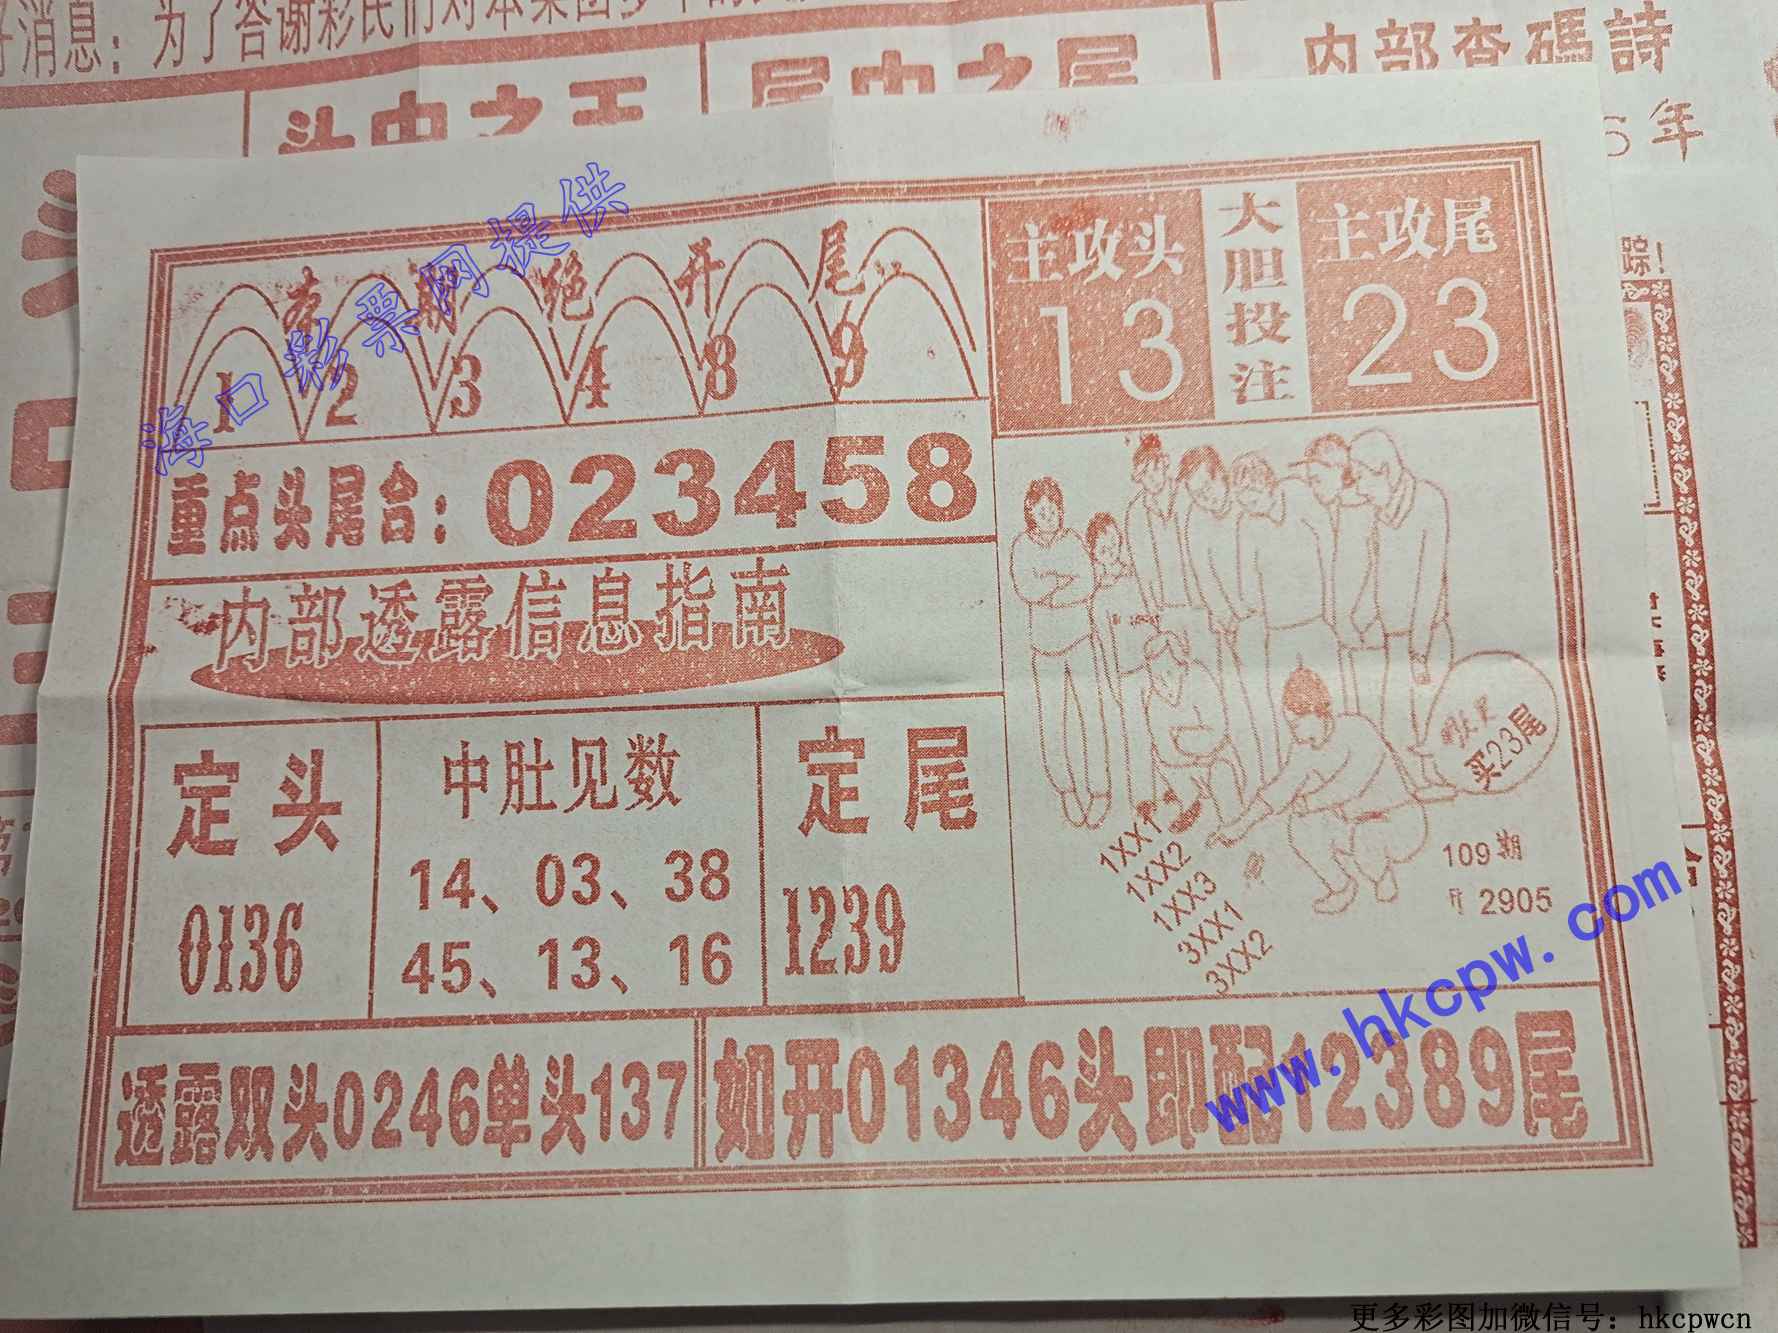 消息：为了答谢彩民们对本集团多年的
头中之王
尾中之尾
内部杏碼詩
年
踪!
海口彩票网提供
绝 开 尾
1 2 3 4 8 9
主攻头
13
大胆投注
主攻尾
23
重点头尾合：023458
内部透露信息指南
定头
0136
中肚见数
14、03、38
45、13、16
定尾
1239
买23尾
1XX1
1XX2
1XX3
3XX1
3XX2
109期
开2905
www.hkcpw.com
透露双头0246单头137
如开01346头即配12389尾
更多彩图加微信号：hkcpwcn